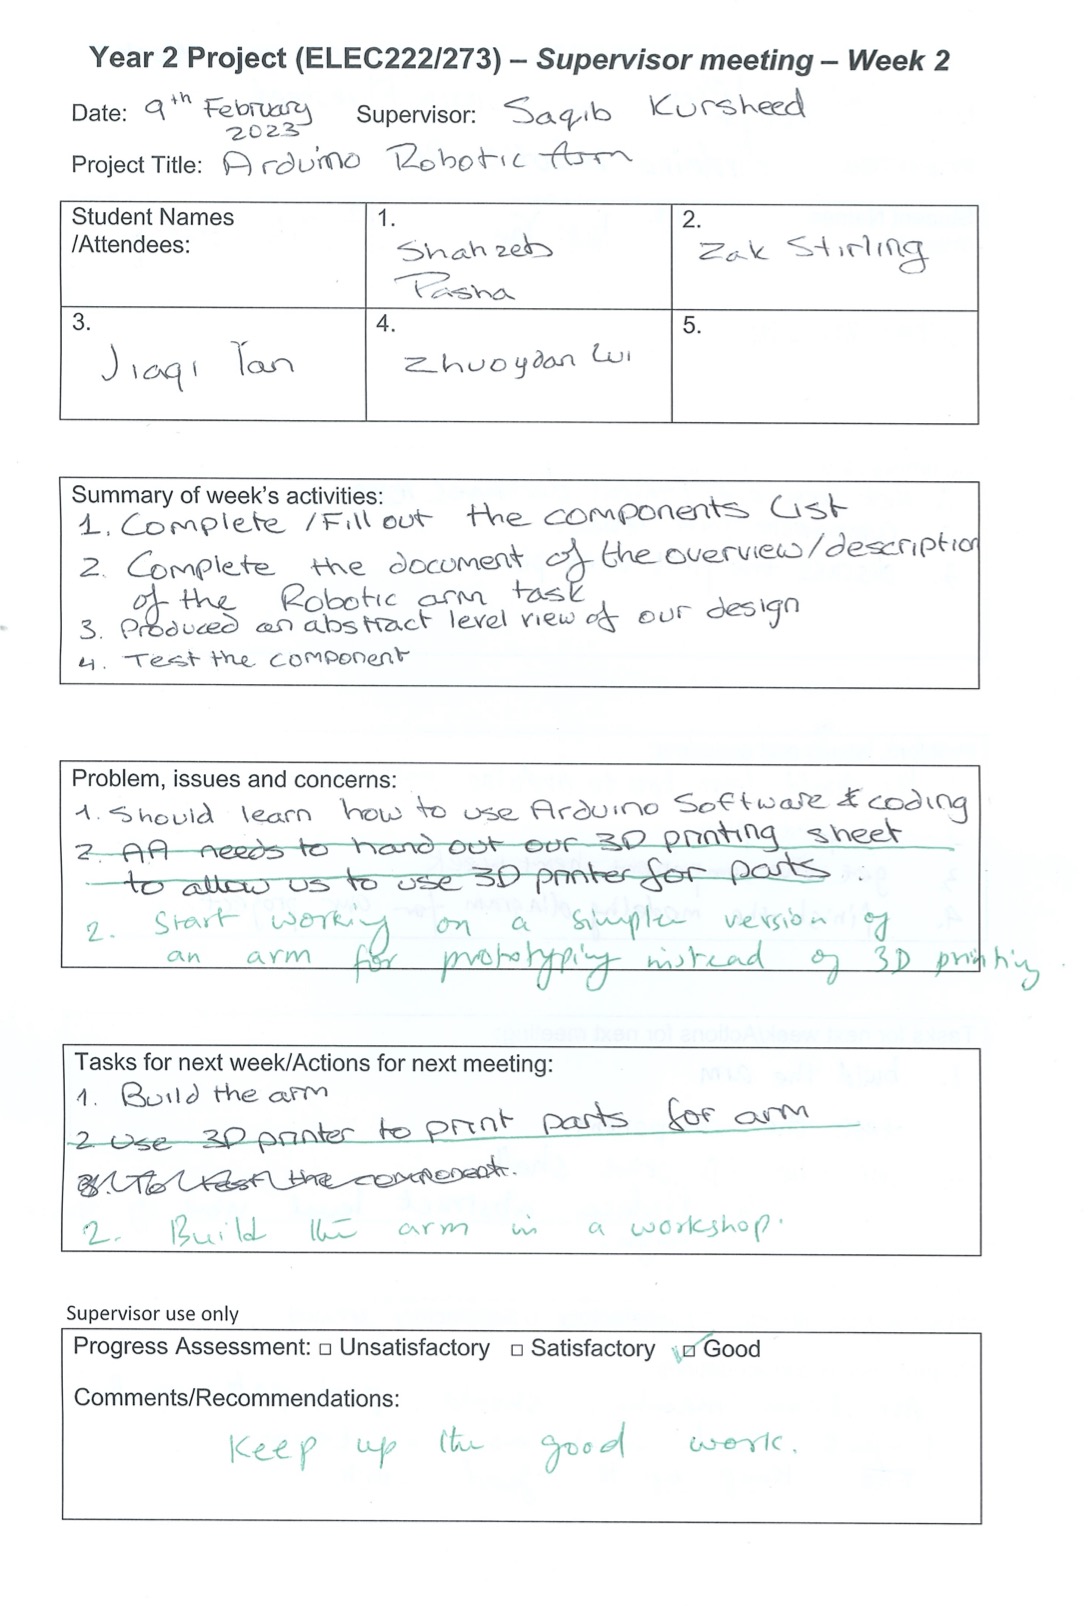 Year 2 Project (ELEC222/273) – Supervisor meeting – Week 2
Date: 9th February 2023 Supervisor: Saqib Kursheed
Project Title: Arduino Robotic Arm
Student Names /Attendees:
1.
Shahzeb
Pasha
2.
Zak Stirling
3.
Jiaqi Tan
4.
Zhuoydan Lui
5.
Summary of week's activities:
1. Complete /Fill out the components List
2. Complete the document of the overview/description
of the Robotic arm task
3. Produced an abstract level view of our design
4. Test the component
Problem, issues and concerns:
1. Should learn how to use Arduino Software & coding
2. AA needs to hand out our 3D printing sheet
to allow us to use 3D printer for parts.
2. Start working on a simpler version of
an arm for prototyping instead of 3D printing.
Tasks for next week/Actions for next meeting:
1. Build the arm
2 Use 3D printer to print parts for arm
3. To test the component.
2. Build the arm in a workshop.
Supervisor use only
Progress Assessment: □ Unsatisfactory □ Satisfactory ☑ Good
Comments/Recommendations:
Keep up the good work.